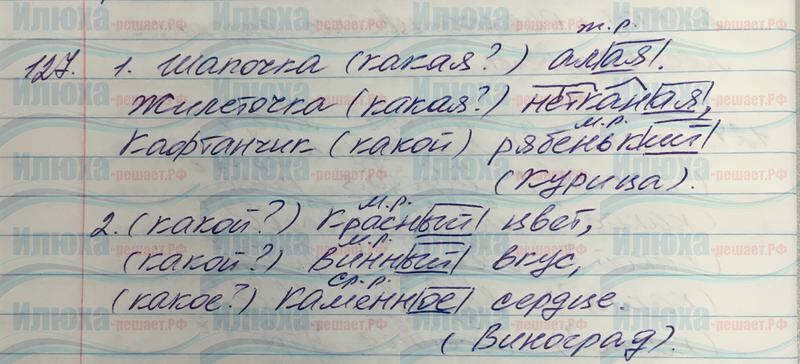 ж.р.
127. 1. Шапочка (какая?) алая.
Жилеточка (какая?) нетканая,
м.р.
Кафтанчик (какой) рябенький
(Курица).
м.р.
2. (какой?) Красный цвет,
м.р.
(какой?) Винный вкус,
ср.р.
(какое?) Каменное сердце.
(Виноград).
Илюха-решает.РФ